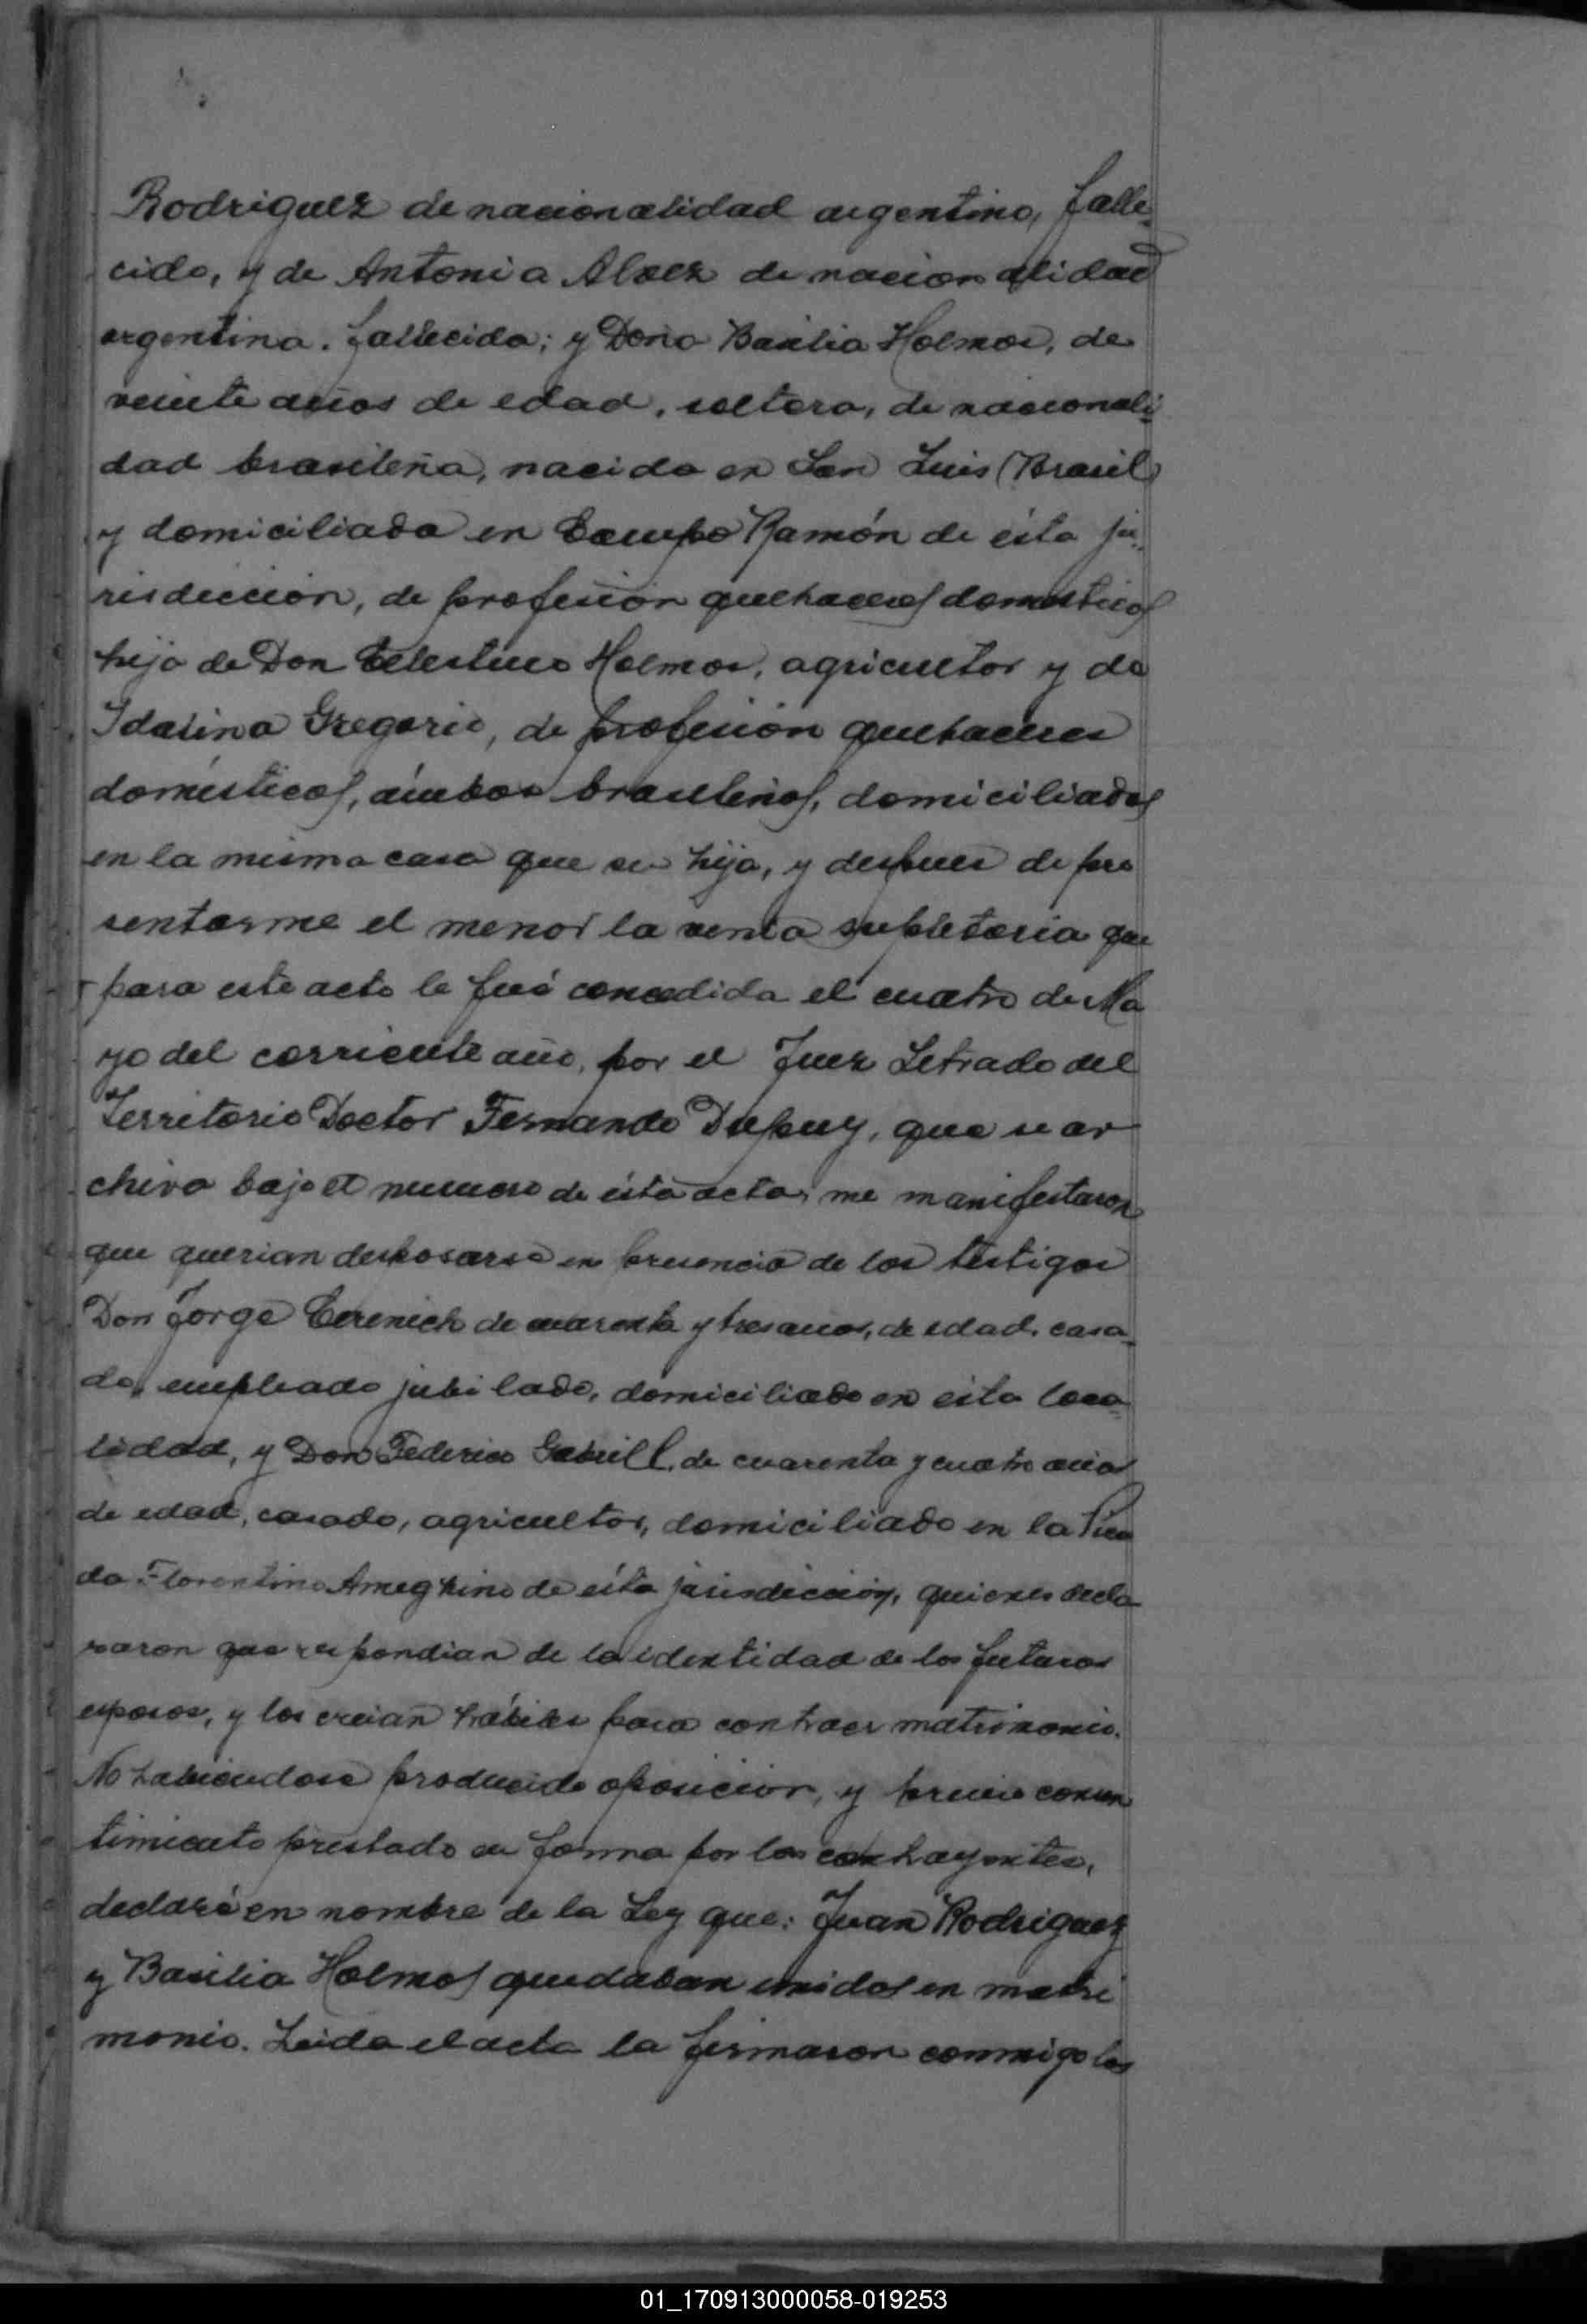 Rodriguez de nacionalidad argentino, falle-
cido, y de Antonia Alvez de nacionalidad
argentina, fallecida; y Doña Basilia Holmos, de
veinte años de edad, soltera, de nacionali-
dad brasileña, nacida en San Luis (Brasil)
y domiciliada en Campo Ramón de ésta ju-
risdicción, de profesión quehaceres domésticos
hija de Don Celestino Holmos, agricultor y de
Idalina Gregorio, de profesión quehaceres
domésticos, ámbos brasileños, domiciliados
en la misma casa que su hija, y despues de pre
sentarme el menor la venia supletoria que
para este acto le fué concedida el cuatro de Ma
yo del corriente año, por el Juez Letrado del
Territorio Doctor Fernando Dupuy, que se ar
chiva bajo el numero de ésta acta, me manifestaron
que querian desposarse en presencia de los testigos
Don Jorge Cerenich de cuarenta y tres años, de edad, casa-
do, empleado jubilado, domiciliado en esta loca-
lidad, y Don Federico Gabrill, de cuarenta y cuatro años
de edad, casado, agricultor, domiciliado en la Pica
da Florentino Ameghino de ésta jurisdicción, quienes decla
raron que respondian de la identidad de los futuros
esposos, y los creian hábiles para contraer matrimonio.
No habiendose producido oposicion, y previo consen
timiento prestado en forma por los contrayentes,
declaré en nombre de la Ley que: Juan Rodriguez
y Basilia Holmos quedaban unidos en matri
monio. Leida el acta la firmaron conmigo los
01_170913000058-019253